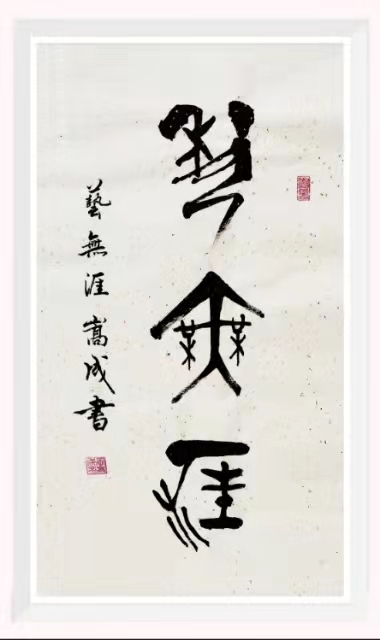 藝無涯
藝無涯 嵩成書